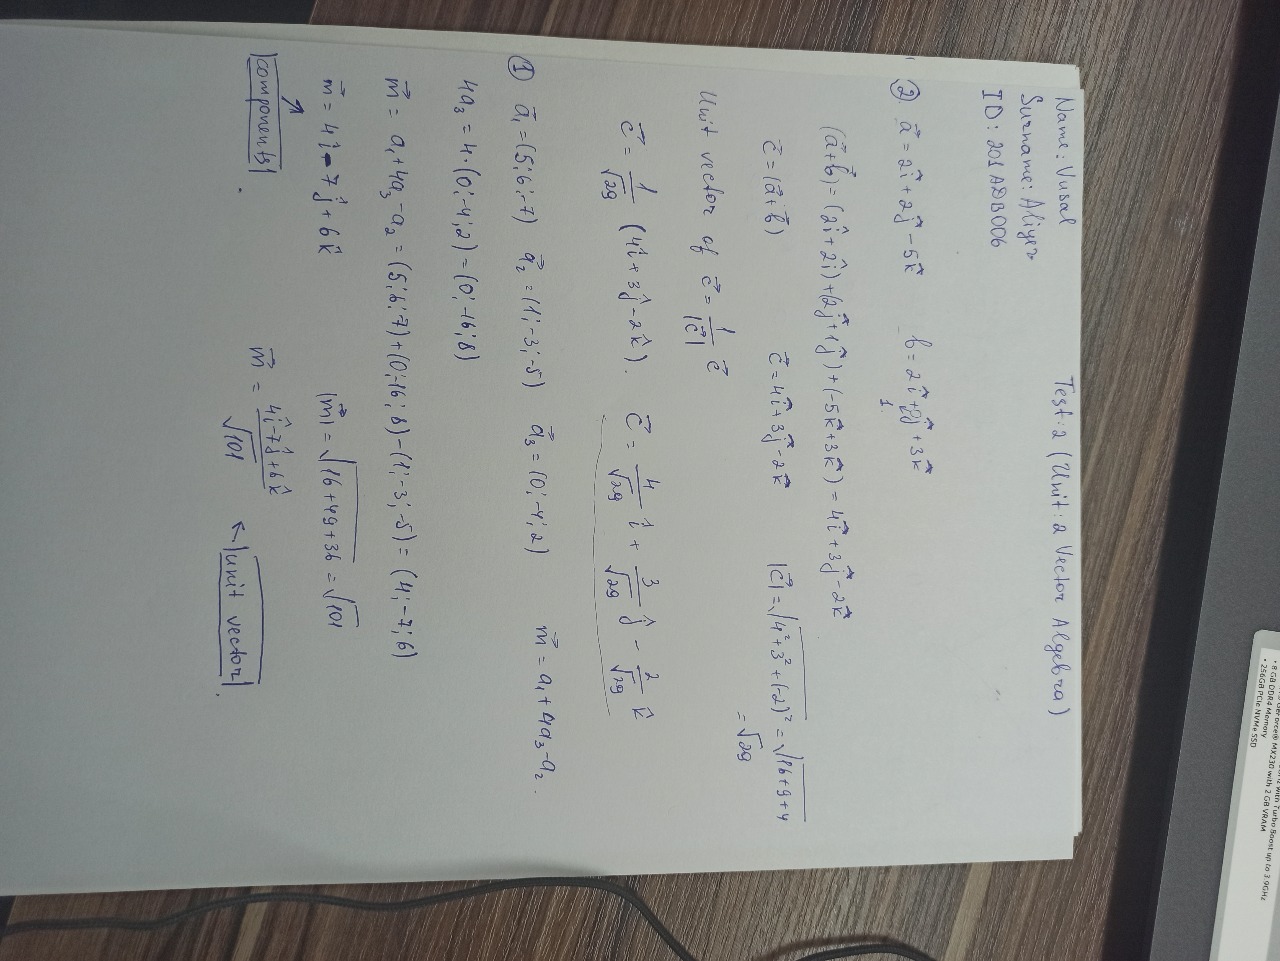 GeForce® MX230 with 2 GB VRAM
with Turbo Boost up to 3.9GHz
• 8 GB DDR4 Memory
• 256GB PCIe NVMe SSD
Name: Vusal Test:2 (Unit:2 Vector Algebra)
Surname: Aliyev
ID: 201ADB006
② a⃗ = 2î + 2ĵ - 5k̂ b = 2î + ĵ + 3k̂
1.
(a⃗+b⃗) = (2î + 2î) + (2ĵ + 1ĵ) + (-5k̂ + 3k̂) = 4î + 3ĵ - 2k̂
c⃗ = (a⃗+b⃗) c⃗ = 4î + 3ĵ - 2k̂ |c⃗| = √(4² + 3² + (-2)²) = √(16+9+4)
= √29
Unit vector of c⃗ = 1/|c⃗| c⃗
c⃗ = 1/√29 (4î + 3ĵ - 2k̂). c⃗ = 4/√29 î + 3/√29 ĵ - 2/√29 k̂
① a⃗₁ = (5; 6; -7) a⃗₂ = (1; -3; -5) a⃗₃ = (0; -4; 2) m⃗ = a₁ + 4a₃ - a₂.
4a₃ = 4·(0; -4; 2) = (0; -16; 8)
m⃗ = a₁ + 4a₃ - a₂ = (5; 6; -7) + (0; -16; 8) - (1; -3; -5) = (4; -7; 6)
m⃗ = 4î - 7ĵ + 6k̂ |m⃗| = √(16+49+36) = √101
components
m⃗ = (4î - 7ĵ + 6k̂)/√101 ← unit vector